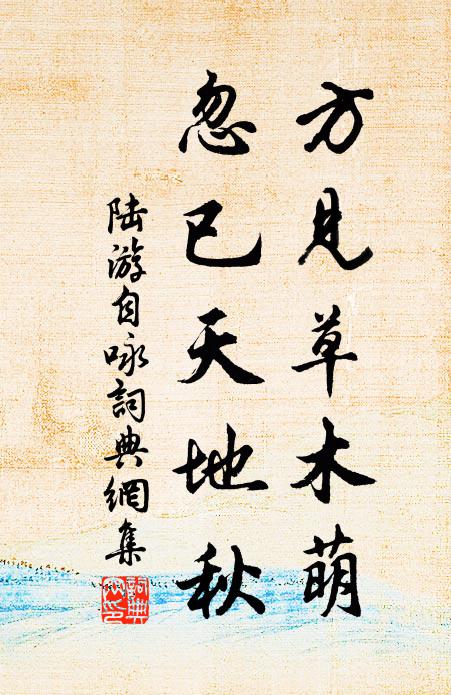 方見草木萌
忽已天地秋
陆游自咏詞典網集